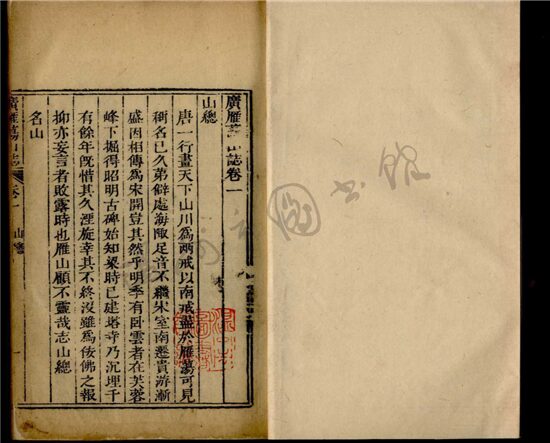 廣雁蕩山誌卷一
山總
唐一行畫天下山川為兩戒以南戒盡於雁蕩可見
稱名已久第僻處海陬足音不繼宋室南遷貴游漸
盛因相傳為宋開豈其然乎明季有臥雲者在芙蓉
峰下掘得昭明古碑始知梁時已建塔寺乃沉埋千
有餘年既惜其久湮旋幸其不終沒雖為佞佛之報
抑亦妄言者敗露時也雁山顧不靈哉志山總
名山
廣雁蕩山誌 卷一 山總